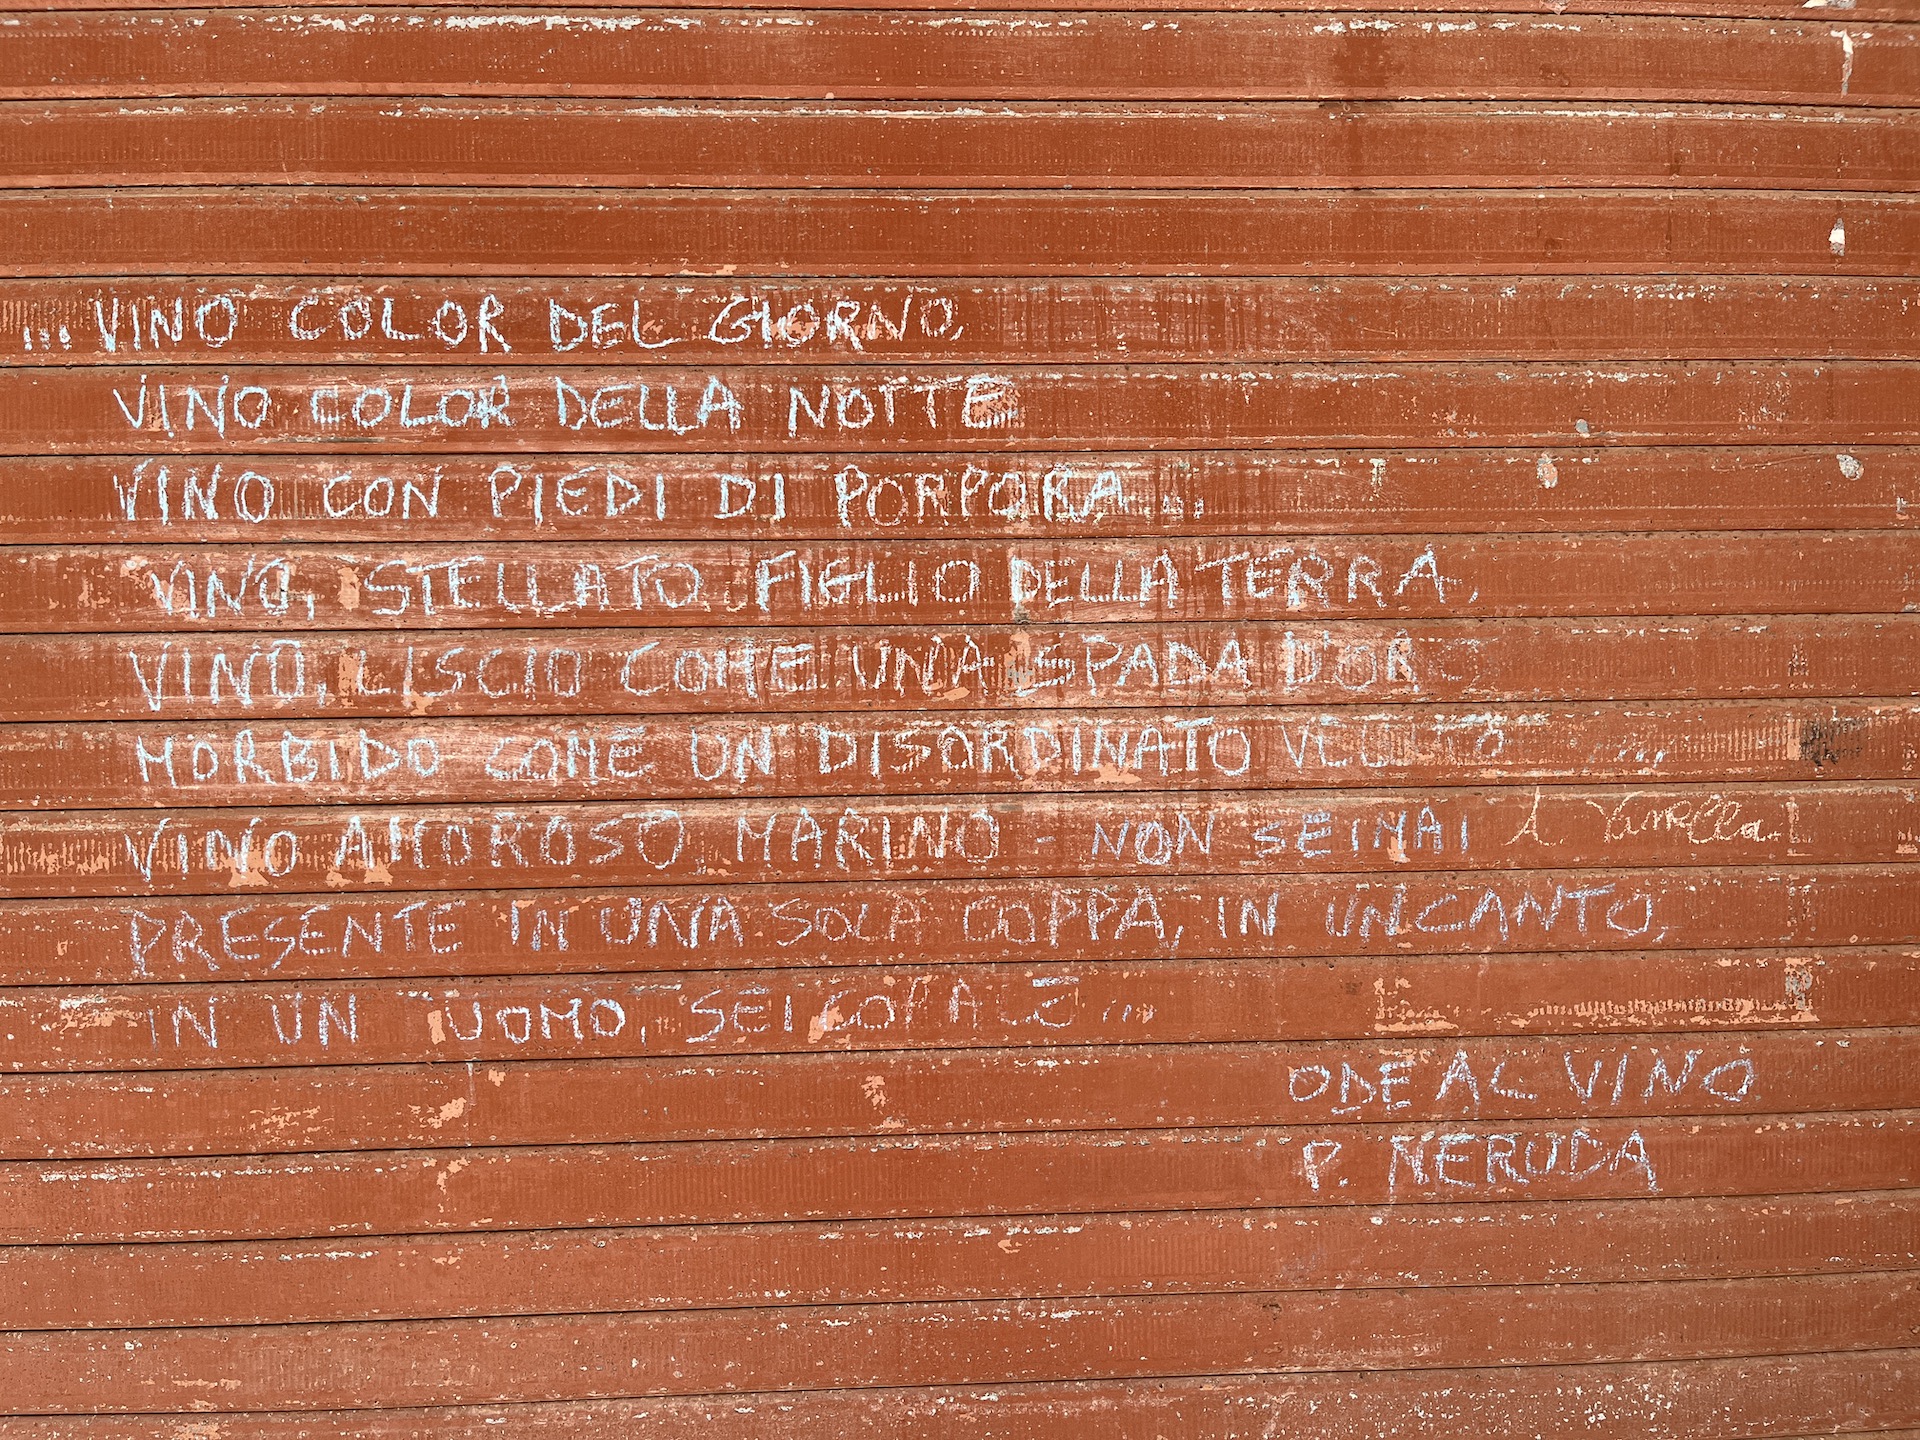 ... VINO COLOR DEL GIORNO,
VINO COLOR DELLA NOTTE
VINO CON PIEDI DI PORPORA...
VINO, STELLATO FIGLIO DELLA TERRA,
VINO, LISCIO COME UNA SPADA D'ORO
MORBIDO COME UN DISORDINATO VELLUTO ...
VINO AMOROSO, MARINO - NON SEI MAI
PRESENTE IN UNA SOLA COPPA, IN UN CANTO,
IN UN UOMO, SEI CORALE...
ODE AL VINO
P. NERUDA